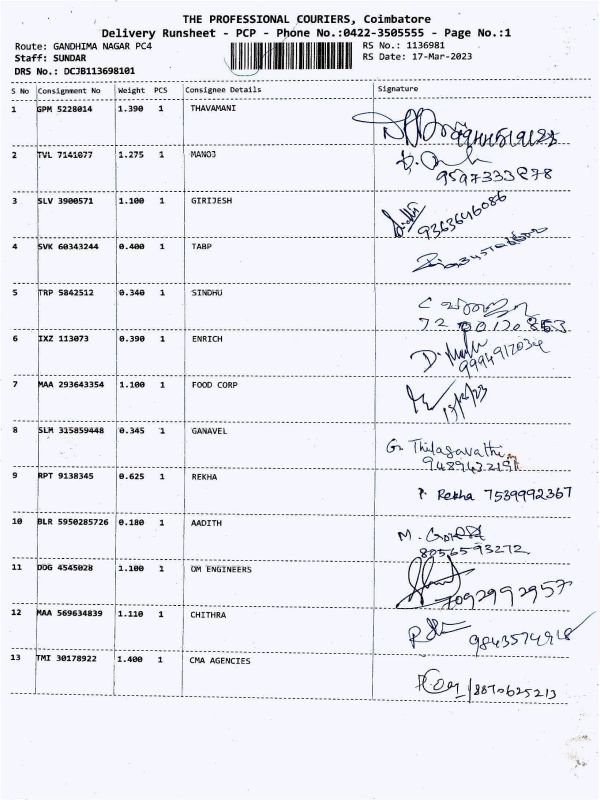 THE PROFESSIONAL COURIERS, Coimbatore
Delivery Runsheet - PCP - Phone No.:0422-3505555 - Page No.:1
Route: GANDHIMA NAGAR PC4 RS No.: 1136981
Staff: SUNDAR RS Date: 17-Mar-2023
DRS No.: DCJB113698101
S No Consignment No Weight PCS Consignee Details Signature
1 GPM 5228014 1.390 1 THAVAMANI
2 TVL 7141077 1.275 1 MANOJ
9597333878
3 SLV 3900571 1.100 1 GIRIJESH
9363646086
4 SVK 60343244 0.400 1 TABP
5 TRP 5842512 0.340 1 SINDHU
6 IXZ 113073 0.390 1 ENRICH
7 MAA 293643354 1.100 1 FOOD CORP
8 SLM 315859448 0.345 1 GANAVEL
G. Thilagavathi
9 RPT 9138345 0.625 1 REKHA
P. Rekha 7539992367
10 BLR 5950285726 0.180 1 AADITH
8056593272
11 DDG 4545028 1.100 1 OM ENGINEERS
7092992957
12 MAA 569634839 1.110 1 CHITHRA
9843574918
13 TMI 30178922 1.400 1 CMA AGENCIES
8870625213